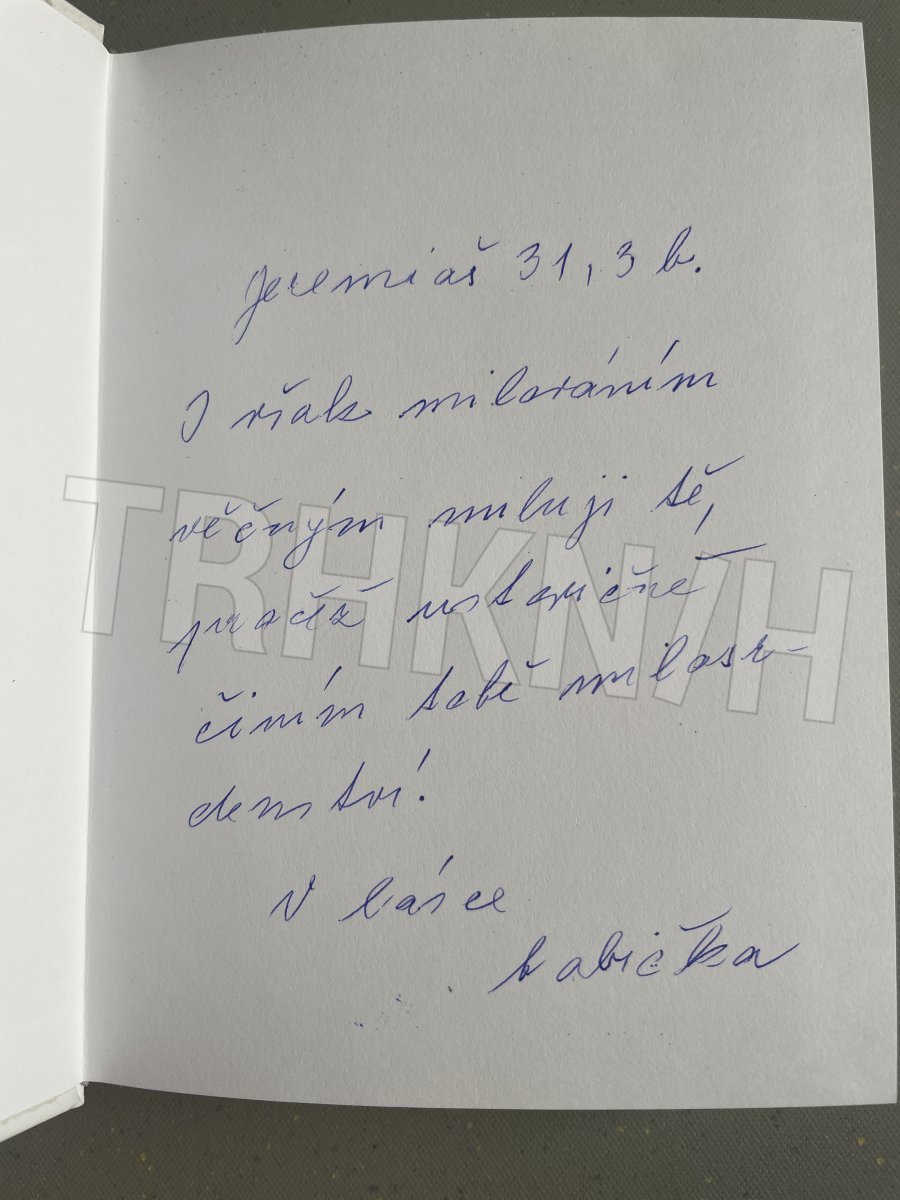 Jeremiáš 31, 3 b.
I však milováním
věčným miluji tě,
pročž ustavičně
činím tobě milosr-
denství!
V lásce
babička
TRHKNIH